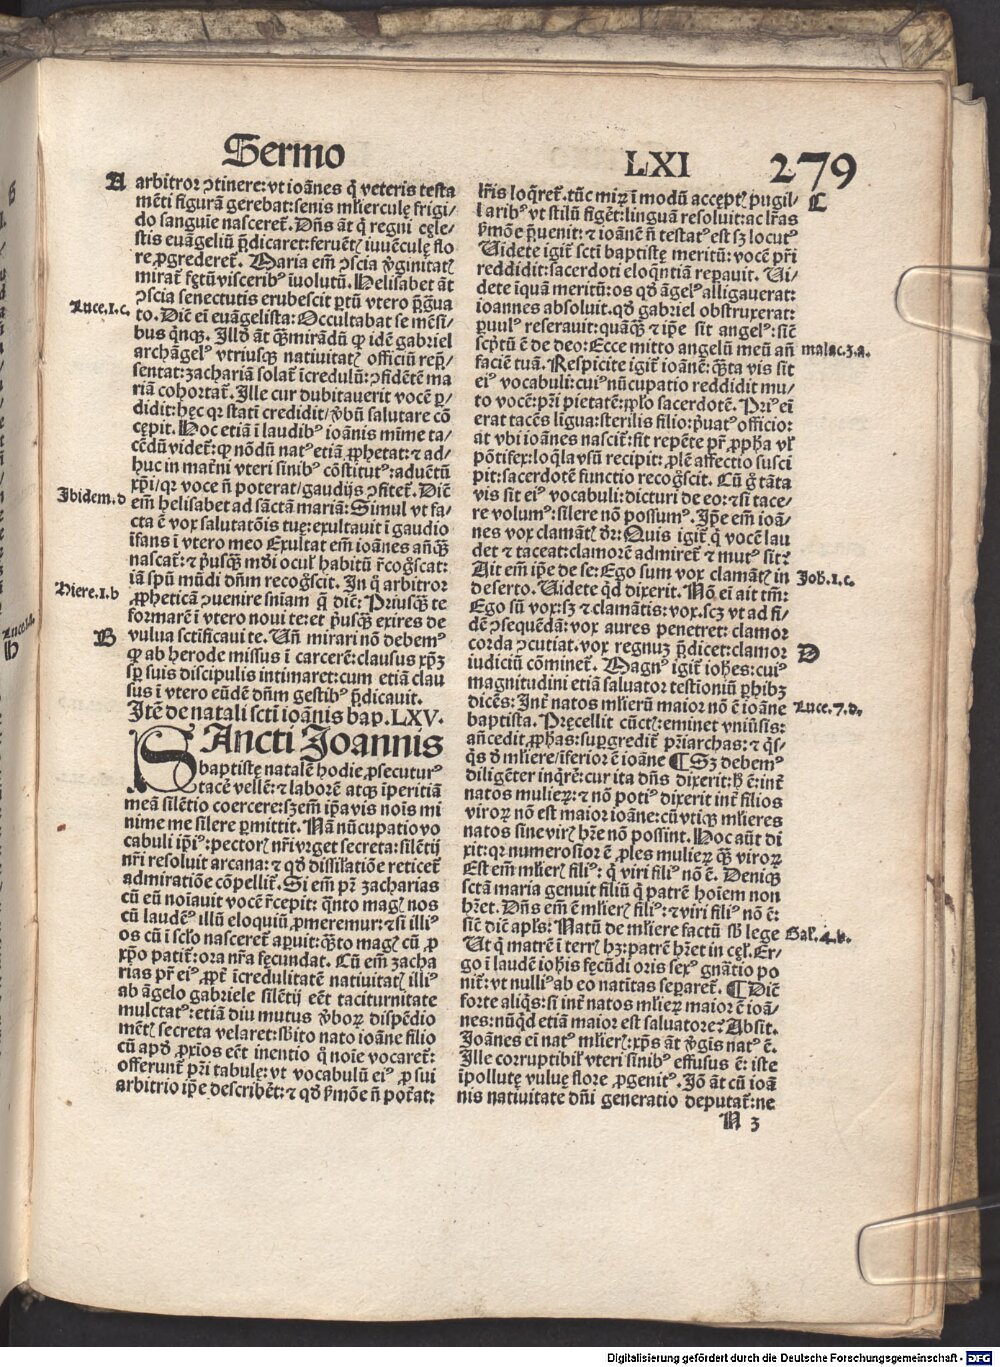 Sermo LXI 279
A arbitror ꝯtinere: vt ioānes q̇ veteris testa
mēti figurā gerebat: senis mlierculę frigi/
do sanguīe nasceret̄. Dn̄s āt q̇ regni cęle-
stis euāgeliū p̄dicaret: feruēti iuuēculę flo
re ꝓgrederet̄. Maria em̄ ꝯscia v̄ginitatꝭ
mirat̄ fętū visceribꝰ īuolutū. Helisabet āt
ꝯscia senectutis erubescit ꝑtū vtero p̄gͣua
Luce.1.c. to. Diē ei euāgelista: Occultabat se mēsi/
bus q̇nqꝫ. Illḋ āt q̄ꝫmirādū ꝙ idē gabriel
archāgelꝰ vtriusqꝫ natiuitatꝭ officiū rep̄/
sentat: zachariā solat̄ īcredulū: ꝯfidētē ma
riā cohortat̄. Ille cur dubitauerit vocē ꝑ/
didit: hęc qꝛ stati credidit/ v̄bū salutare cō
cępit. Hoc etiā ī laudibꝰ ioānis mīme ta/
cēdū videt̄: ꝙ nōdū natꝰ etiā ꝓphetat: ⁊ ad/
huc in mat̄ni vteri sinibꝰ cōstitutꝰ: aduētū
xp̄i/ qꝛ voce n̄ poterat/ gaudijs ꝯfitet̄. Diē
Ibidem.d em̄ helisabet ad sāctā mariā: Simul vt fa/
cta ē vox salutatōis tuę: exultauit ī gaudio
īfans ī vtero meo Exultat em̄ ioānes ān̄qꝫ
nascat̄: ⁊ p̄usqꝫ mōi oculꝭ habitū rcog̊scat:
iā spū mūdi dn̄m recog̊scit. In q̇ arbitror
Hiere.1.b ꝓpheticā ꝯuenire sniam q̄ diē: Priusqꝫ te
formarē ī vtero noui te: et p̄usqꝫ exires de
B vulua sctificaui te. Vn̄ mirari nō debemꝰ
ꝙ ab herode missus ī carcerē: clausus xp̄ꝫ
sꝑ suis discipulis intimaret: cum etiā clau
sus ī vtero eūdē dn̄m gestibꝰ p̄dicauit.
Itē de natali scti ioānis bap. LXV.
SAncti Joannis
baptistę natalē hodie ꝓsecuturꝰ
tacē vellē: ⁊ laborē atqꝫ īperitiā
meā silētio coercere: sꝫ em̄ ip̄a vis nois mi
nime me silere ꝑmittit. Nā nūcupatio vo
cabuli ip̄iꝰ: pectorꝭ nr̄i vrget secreta: silētij
nr̄i resoluit arcana: ⁊ qḋ dissilatiōe reticet̄
admiratiōe cōpellit̄. Si em̄ pr̄ zacharias
cū eū noīauit vocē rcepit: q̇nto magꝭ nos
cū laudēꝰ illū eloquiū ꝓmeremur: ⁊ si illiꝰ
os cū ī sclo nasceret̄ aꝑuit: q̇̄to magꝭ cū ꝓ
xp̄o patit̄: ora nr̄a fęcundat. Cū em̄ zacha
rias pr̄ eiꝰ ꝓpt̄ īcredulitatē natiuitatꝭ illiꝰ
ab āgelo gabriele silētij eēt taciturnitate
mulctatꝰ: etiā diu mutus v̄boꝝ dispēdio
mētꝭ secreta velaret: sbito nato ioāne filio
cū apḋ ꝓxīos eēt inentio q̇ noīe vocaret̄:
offerunt̄ pr̄i tabulę: vt vocabulū eiꝰ ꝓ sui
arbitrio ip̄e describēt: ⁊ qḋ ẜmōe n̄ poteat:
lr̄is loq̄ret̄. tūc miꝝ ī modū acceptꝭ pugil/
C laribꝰ vt stilū figēt: linguā resoluit: ac lr̄as
ẜmōe p̄uenit: ⁊ ioānē n̄ testatꝰ est sꝫ locutꝰ
Uidete igit̄ scti baptistę meritū: vocē pr̄i
reddidit: sacerdoti eloq̄ntiā reꝑauit. Ui/
dete īquā meritū: os qḋ āgelꝰ alligauerat:
ioannes absoluit. qḋ gabriel obstruxerat:
ꝑuulꝰ reserauit: quāqꝫ ⁊ ip̄e sit angelꝰ: siē
scp̄tū ē de deo: Ecce mitto angelū meū an̄ malac.3.a.
faciē tuā. Respicite igit̄ ioānē: q̄ta vis sit
eiꝰ vocabuli: cuiꝰ nūcupatio reddidit mu/
to vocē: pr̄i pietatē: pplo sacerdotē. Priꝰ ei
erat tacēs ligua: sterilis filio: p̄uatꝰ officio:
at vbi ioānes nascit̄: fit repēte pr̄ ꝓpha vl
pōtifex: loq̄la vsū recipit: ꝓlē affectio susci
pit: sacerdotē functio recog̊scit. Cū g̊ tāta
vis sit eiꝰ vocabuli: dicturi de eo: ⁊ si tace/
re volumꝰ: silere nō possumꝰ. Ip̄e em̄ ioā/
nes vox clamātꝭ dr̄: Quis igit̄ q̇ vocē lau
det ⁊ taceat: clamorē admiret̄ ⁊ mutꝰ sit?
Ait em̄ ip̄e de se: Ego sum vox clamātꝭ in Joh.1.c.
deserto. Uidete q̇d dixerit. Nō ei ait tm̄:
Ego sū vox: sꝫ ⁊ clamātis: vox .scꝫ vt ad fi/
dē ꝯsequēdā: vox aures penetret: clamor
corda ꝯcutiat. vox regnuꝫ p̄dicet: clamor D
iudiciū cōminet̄. Magnꝰ igit̄ iohes: cuiꝰ
magnitudini etiā saluator testioniū ꝑhibꝫ
dicēs: Int̄ natos mlierū maior nō ē ioāne Luce.7.d.
baptista. Pręcellit cūctꝭ: eminet vniūsis:
an̄cedit ꝓphas: suꝑgredit̄ pr̄iarchas: ⁊ q̇s/
q̇s ḋ mliere/ īferior ē ioāne ¶ Sꝫ debemꝰ
diligēter inq̇rē: cur ita dn̄s dixerit: h̄ ē: int̄
natos mulieꝝ: ⁊ nō potiꝰ dixerit int̄ filios
viroꝝ nō est maior ioāne: cū vtiqꝫ mlieres
natos sine virꝭ hr̄e nō possint. Hoc aūt di
xit: qꝛ numerosior ē ꝓles mulieꝝ qꝫ̄ viroꝝ
Est em̄ mlierꝭ filiꝰ: q̇ viri filiꝰ nō ē. Deniqꝫ
sctā maria genuit filiū q̇ patrē hoīem non
hr̄et. Dn̄s em̄ ē mlierꝭ filiꝰ: ⁊ viri filiꝰ nō ē:
siē diē apl̄s: Natū de mliere factū sb lege Gal.4.b.
Ut q̇ matrē ī terrꝭ hꝫ: patrē hr̄et in cęl. Er-
go ī laudē iohis fęcūdi oris sexꝰ gn̄atio po
nit̄: vt nulliꝰ ab eo natiitas seꝑaret̄. ¶ Diē
forte aliq̇s: si int̄ natos mlieꝝ maior ē ioā/
nes: nūq̇d etiā maior est saluatore? Absit.
Joānes ei natꝰ mlierꝭ: xp̄s āt v̄gis natꝰ ē.
Ille corruptibilꝭ vteri sinibꝰ effusus ē: iste
īpollutę vuluę flore ꝓgenitꝰ. Jō āt cū ioā
nis natiuitate dn̄i generatio deputat̄: ne
N 3
Digitalisierung gefördert durch die Deutsche Forschungsgemeinschaft - DFG